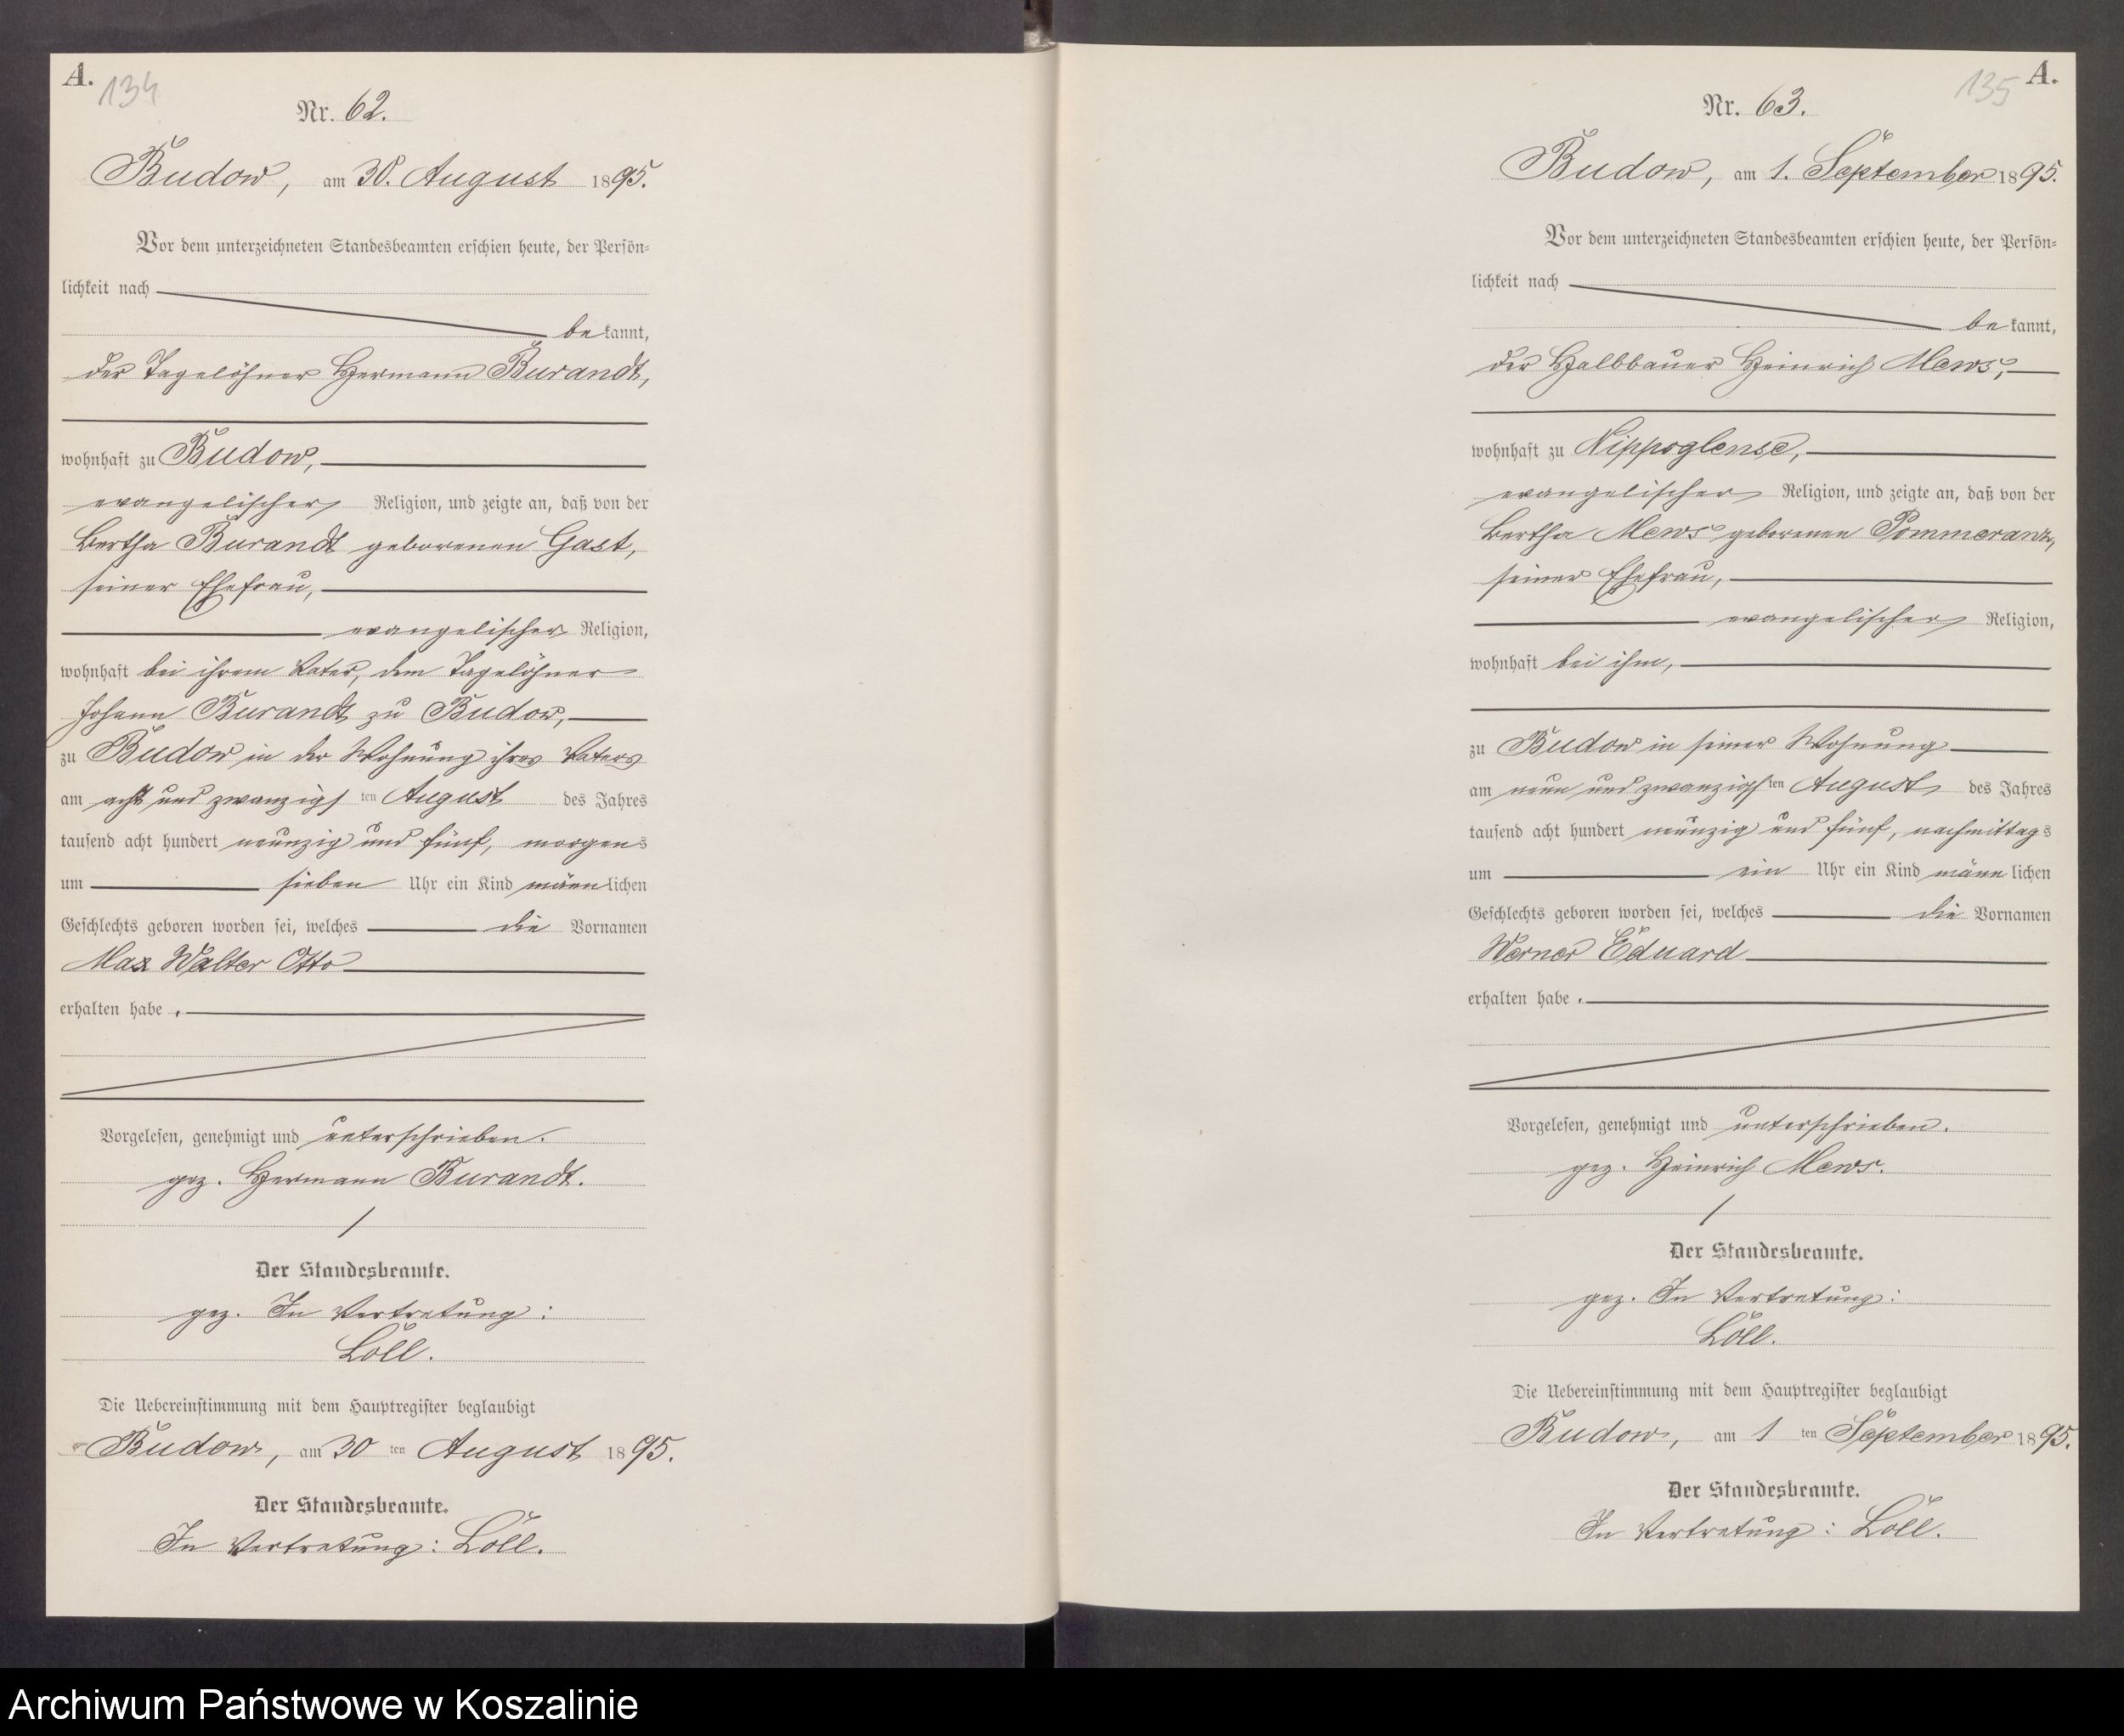 A.
134
Nr. 62.
Budow, am 30. August 1895.
Vor dem unterzeichneten Standesbeamten erschien heute, der Persön-
lichkeit nach
bekannt,
der Tagelöhner Hermann Burandt,
wohnhaft zu Budow,
evangelischer Religion, und zeigte an, daß von der
Bertha Burandt geborenen Gast,
seiner Ehefrau,
evangelischer Religion,
wohnhaft bei ihrem Vater, dem Tagelöhner
Johann Burandt zu Budow,
zu Budow in der Wohnung ihres Vaters
am acht und zwanzigsten August des Jahres
tausend acht hundert neunzig und fünf, morgens
um sieben Uhr ein Kind männlichen
Geschlechts geboren worden sei, welches die Vornamen
Max Walter Otto
erhalten habe.
Vorgelesen, genehmigt und unterschrieben.
gez. Hermann Burandt.
Der Standesbeamte.
gez. In Vertretung:
Löll.
Die Uebereinstimmung mit dem Hauptregister beglaubigt
Budow, am 30 ten August 1895.
Der Standesbeamte.
In Vertretung: Löll.
135
A.
Nr. 63.
Budow, am 1. September 1895.
Vor dem unterzeichneten Standesbeamten erschien heute, der Persön-
lichkeit nach
bekannt,
der Halbbauer Heinrich Mews,
wohnhaft zu Nippoglense,
evangelischer Religion, und zeigte an, daß von der
Bertha Mews geborenen Pommeranz,
seiner Ehefrau,
evangelischer Religion,
wohnhaft bei ihm,
zu Budow in seiner Wohnung
am neun und zwanzigsten August des Jahres
tausend acht hundert neunzig und fünf, nachmittags
um ein Uhr ein Kind männlichen
Geschlechts geboren worden sei, welches die Vornamen
Werner Eduard
erhalten habe.
Vorgelesen, genehmigt und unterschrieben.
gez. Heinrich Mews.
Der Standesbeamte.
gez. In Vertretung:
Löll.
Die Uebereinstimmung mit dem Hauptregister beglaubigt
Budow, am 1 ten September 1895.
Der Standesbeamte.
In Vertretung: Löll.
Archiwum Państwowe w Koszalinie